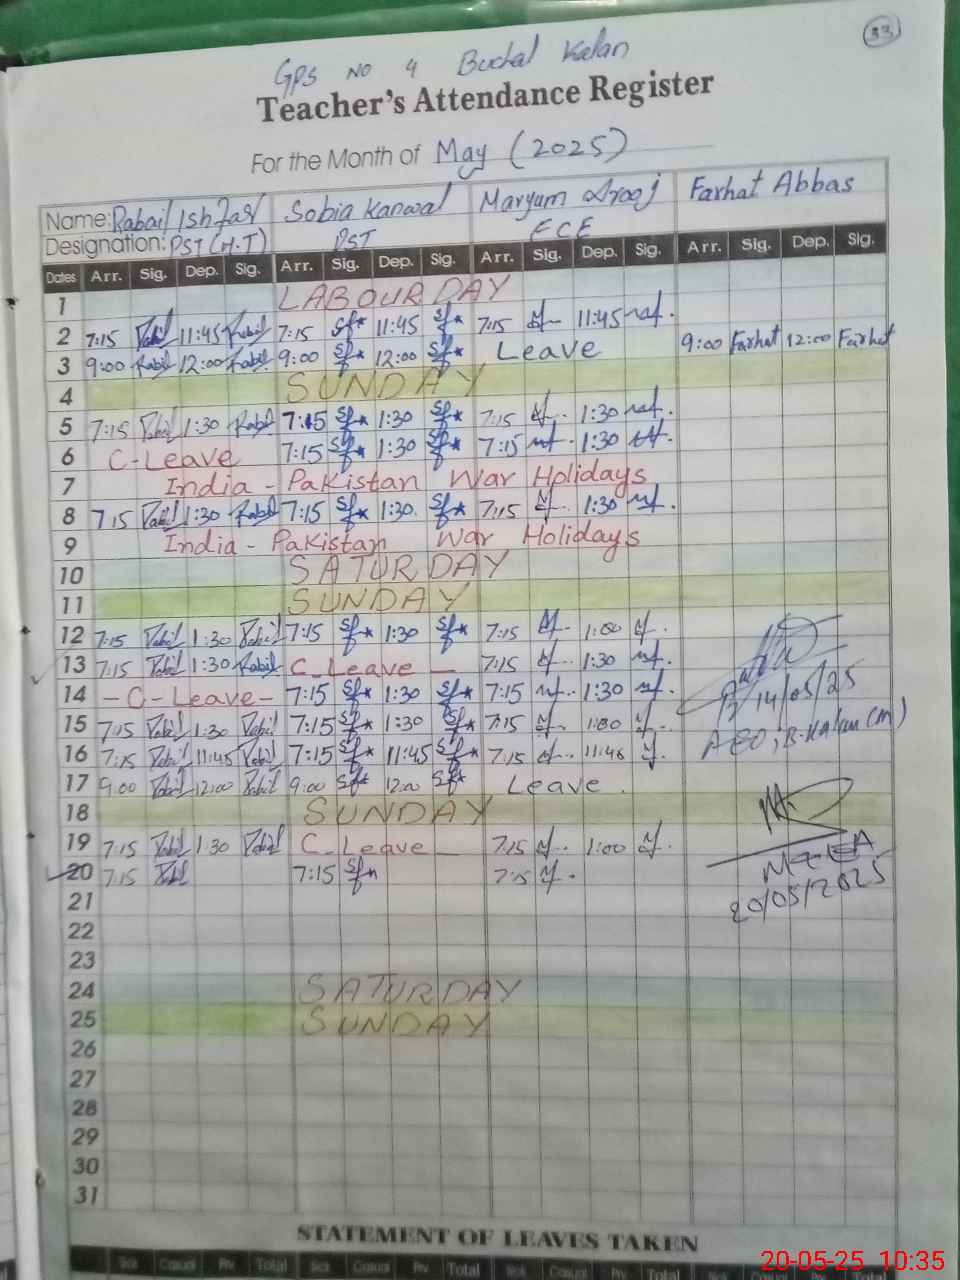 33
GPS No 4 Buchal Kalan
Teacher's Attendance Register
For the Month of May (2025)
Name: Rabail Ishfaq Sobia Kanwal Maryum Arooj Farhat Abbas
Designation: PST (H.T) PST ECE
Dates Arr. Sig. Dep. Sig. Arr. Sig. Dep. Sig. Arr. Sig. Dep. Sig. Arr. Sig. Dep. Sig.
1 LABOUR DAY
2 7:15 Rabil 11:45 Rabil 7:15 11:45 7:15 11:45
3 9:00 Rabil 12:00 Rabil 9:00 12:00 Leave 9:00 Farhat 12:00 Farhat
4 SUNDAY
5 7:15 Rabil 1:30 Rabil 7:15 1:30 7:15 1:30
6 C-Leave 7:15 1:30 7:15 1:30
7 India - Pakistan War Holidays
8 7:15 Rabil 1:30 Rabil 7:15 1:30. 7:15 1:30
9 India - Pakistan War Holidays
10 SATURDAY
11 SUNDAY
12 7:15 Rabil 1:30 Rabil 7:15 1:30 7:15
13 7:15 Rabil 1:30 Rabil C_Leave 7:15 1:30
14 - C - Leave - 7:15 1:30 7:15 1:30
14/05/25
15 7:15 Rabil 1:30 Rabil 7:15 1:30 7:15
AEO, B.Kalan (M)
16 7:15 Rabil 11:45 Rabil 7:15 11:45 7:15 11:45
17 9:00 Rabil 12:00 Rabil 9:00 12:00 Leave.
18 SUNDAY
19 7:15 Rabil 1:30 Rabil C_Leave 7:15 1:00
20 7:15 Rabil 7:15 7:15
20/05/2025
21
22
23
24 SATURDAY
25 SUNDAY
26
27
28
29
30
31
STATEMENT OF LEAVES TAKEN
Sick Casual Prv. Total Sick Casual Prv. Total Sick Casual Prv. Total Sick Casual Prv. Total
20-05-25 10:35